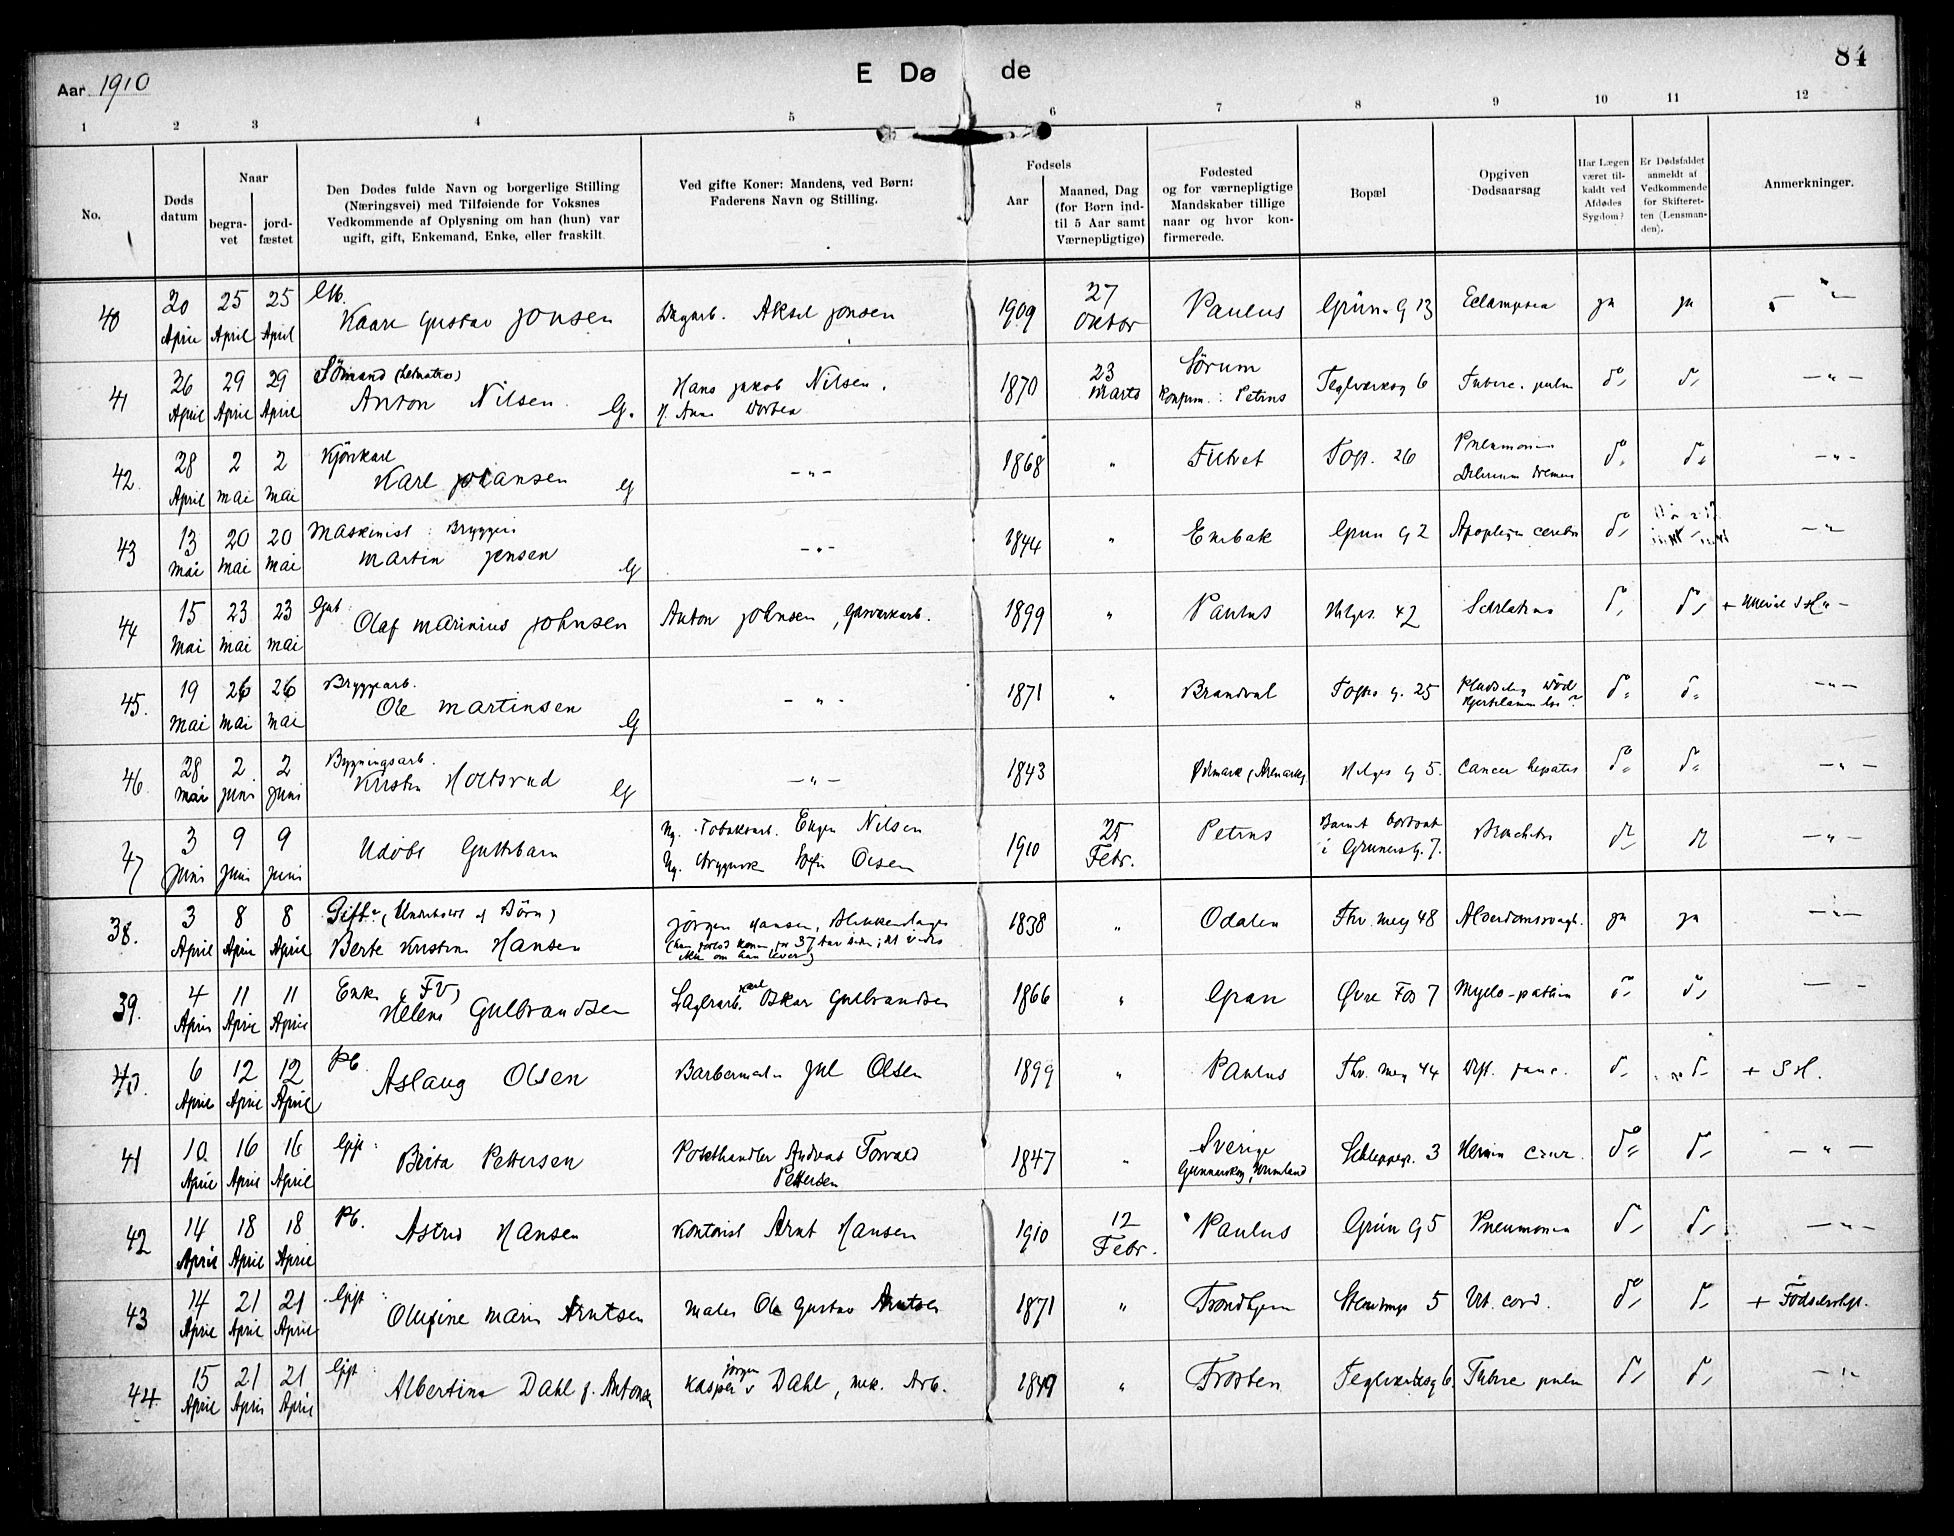 Aar 1910
E Dø de
84
1 2 3 4 5 6 7 8 9 10 11 12
No.
Døds datum
Naar
begra-vet
jord-fæstet
Den Dødes fulde Navn og borgerlige Stilling
(Næringsvei) med Tilføiende for Voksnes
Vedkommende af Oplysning om han (hun) var
ugift, gift, Enkemand, Enke, eller fraskilt.
Ved gifte Koner: Mandens, ved Børn:
Faderens Navn og Stilling.
Fødsels
Aar
Maaned, Dag
(for Børn ind-
til 5 Aar samt
Værnepligtige)
Fødested
og for værnepligtige
Mandskaber tillige
naar og hvor kon-
firmerede.
Bopæl
Opgiven
Dødsaarsag
Har Lægen
været til-
kaldt ved
Afdødes
Sygdom?
Er Dødsfaldet
anmeldt af
Vedkommende
for Skifteret-
ten (Lensman-
den).
Anmerkninger.
40 20 April 25 April 25 April Kaare Gustav Jonsen Dagarb. Aksel Jonsen 1909 27 Oktbr Paulus Grün. G 13 Eclampsia ja ja - " -
41 26 April 29 April 29 April Sømand (Letmatros) Anton Nilsen. G. Hans Jakob Nilsen. 1870 23 Marts Sørum Konfirm.: Petrus Teglverksg 6 Tuberc. pulm do do - " -
42. 28 April 2 Mai 2 Mai Kjørekarl Karl Johansen G - " - 1868 " Tustvet Toft. 26 Pneumonia Delirium tremens do do - " -
43 13 Mai 20 Mai 20 Mai Maskinist: Bryggeri Martin Jensen G - " - 1844 " Enebak Grün G 2 Apoplexia cerebri do - " -
44 15 Mai 23 Mai 23 Mai Gut Olaf Marinius Johnsen Anton Johnsen, Gasverkarb. 1899 " Paulus Helges. 42 Scarlatina do do + Ulleval S H " -
45. 19 Mai 26 Mai 26 Mai Bryggarb. Ole Martinsen G - " - 1871 " Brandval Tofte g. 25 Pludselig Død Hjertelammelse? do do - " -
46 28 Mai 2 Juni 2 Juni Bygningsarb. Kristen Holtsrud G - " - 1843 Ødemark (Aremark) Helges G 5. Cancer hepatis do do - " -
47 3 Juni 9 Juni 9 Juni Udøbt Guttebarn Ug. Tobaksarb. Eugen Nilsen
Ug. Sofie Olsen 1910 25 Febr. Petrus Barnet bortsat i Gruners G. 7. Bronchitis do do - " -
38. 3 April 8 April 8 April Gift (Underholdt af Børn) Berte Kristine Hansen Jørgen Hansen, Blikkenslager
(han forlod konen for 37 Aar siden; det vides ikke om han lever) 1838 " Odalen Thv. mey 48 Alderdomssvagh. ja ja - " -
39. 4 April 11 April 11 April Enke (FV) Helene Gulbrandsen Lagerarb. Karl Oskar Gulbrandsen 1866 " Gran Øvre Fos 7 Myelo-pathia do do - -
40. 6 April 12 April 12 April Pb. Aslaug Olsen Barbermester Jul Olsen 1899 " Paulus Thv. mey 44 Dift. fauc. do do + S H.
41 10 April 16 April 16 April Gift: Berta Pettersen Potethandler Andreas Torvald Pettersen 1847 " Sverige Gunnarskog, Vermland Schleppegr. 3 Hernia crur. do do - " -
42 14 April 18 April 18 April Pb. Astrid Hansen Kontorist Arnt Hansen 1910 12 Febr. Paulus Grün G 5 Pneumonia do do - " -
43 14 April 21 April 21 April Gift: Olufine Marie Arntsen Maler Ole Gustav Arntsen 1871 " Trondhjem Steenstrups 5 Vit. cord. do do + Fødselsstift.
44. 15 April 21 April 21 April Gift: Albertine Dahl f. Antonsen Kasper Jørgen Dahl, mek. Arb. 1849 " Frosten Teglverksg 6. Tuberc pulm do do - " -